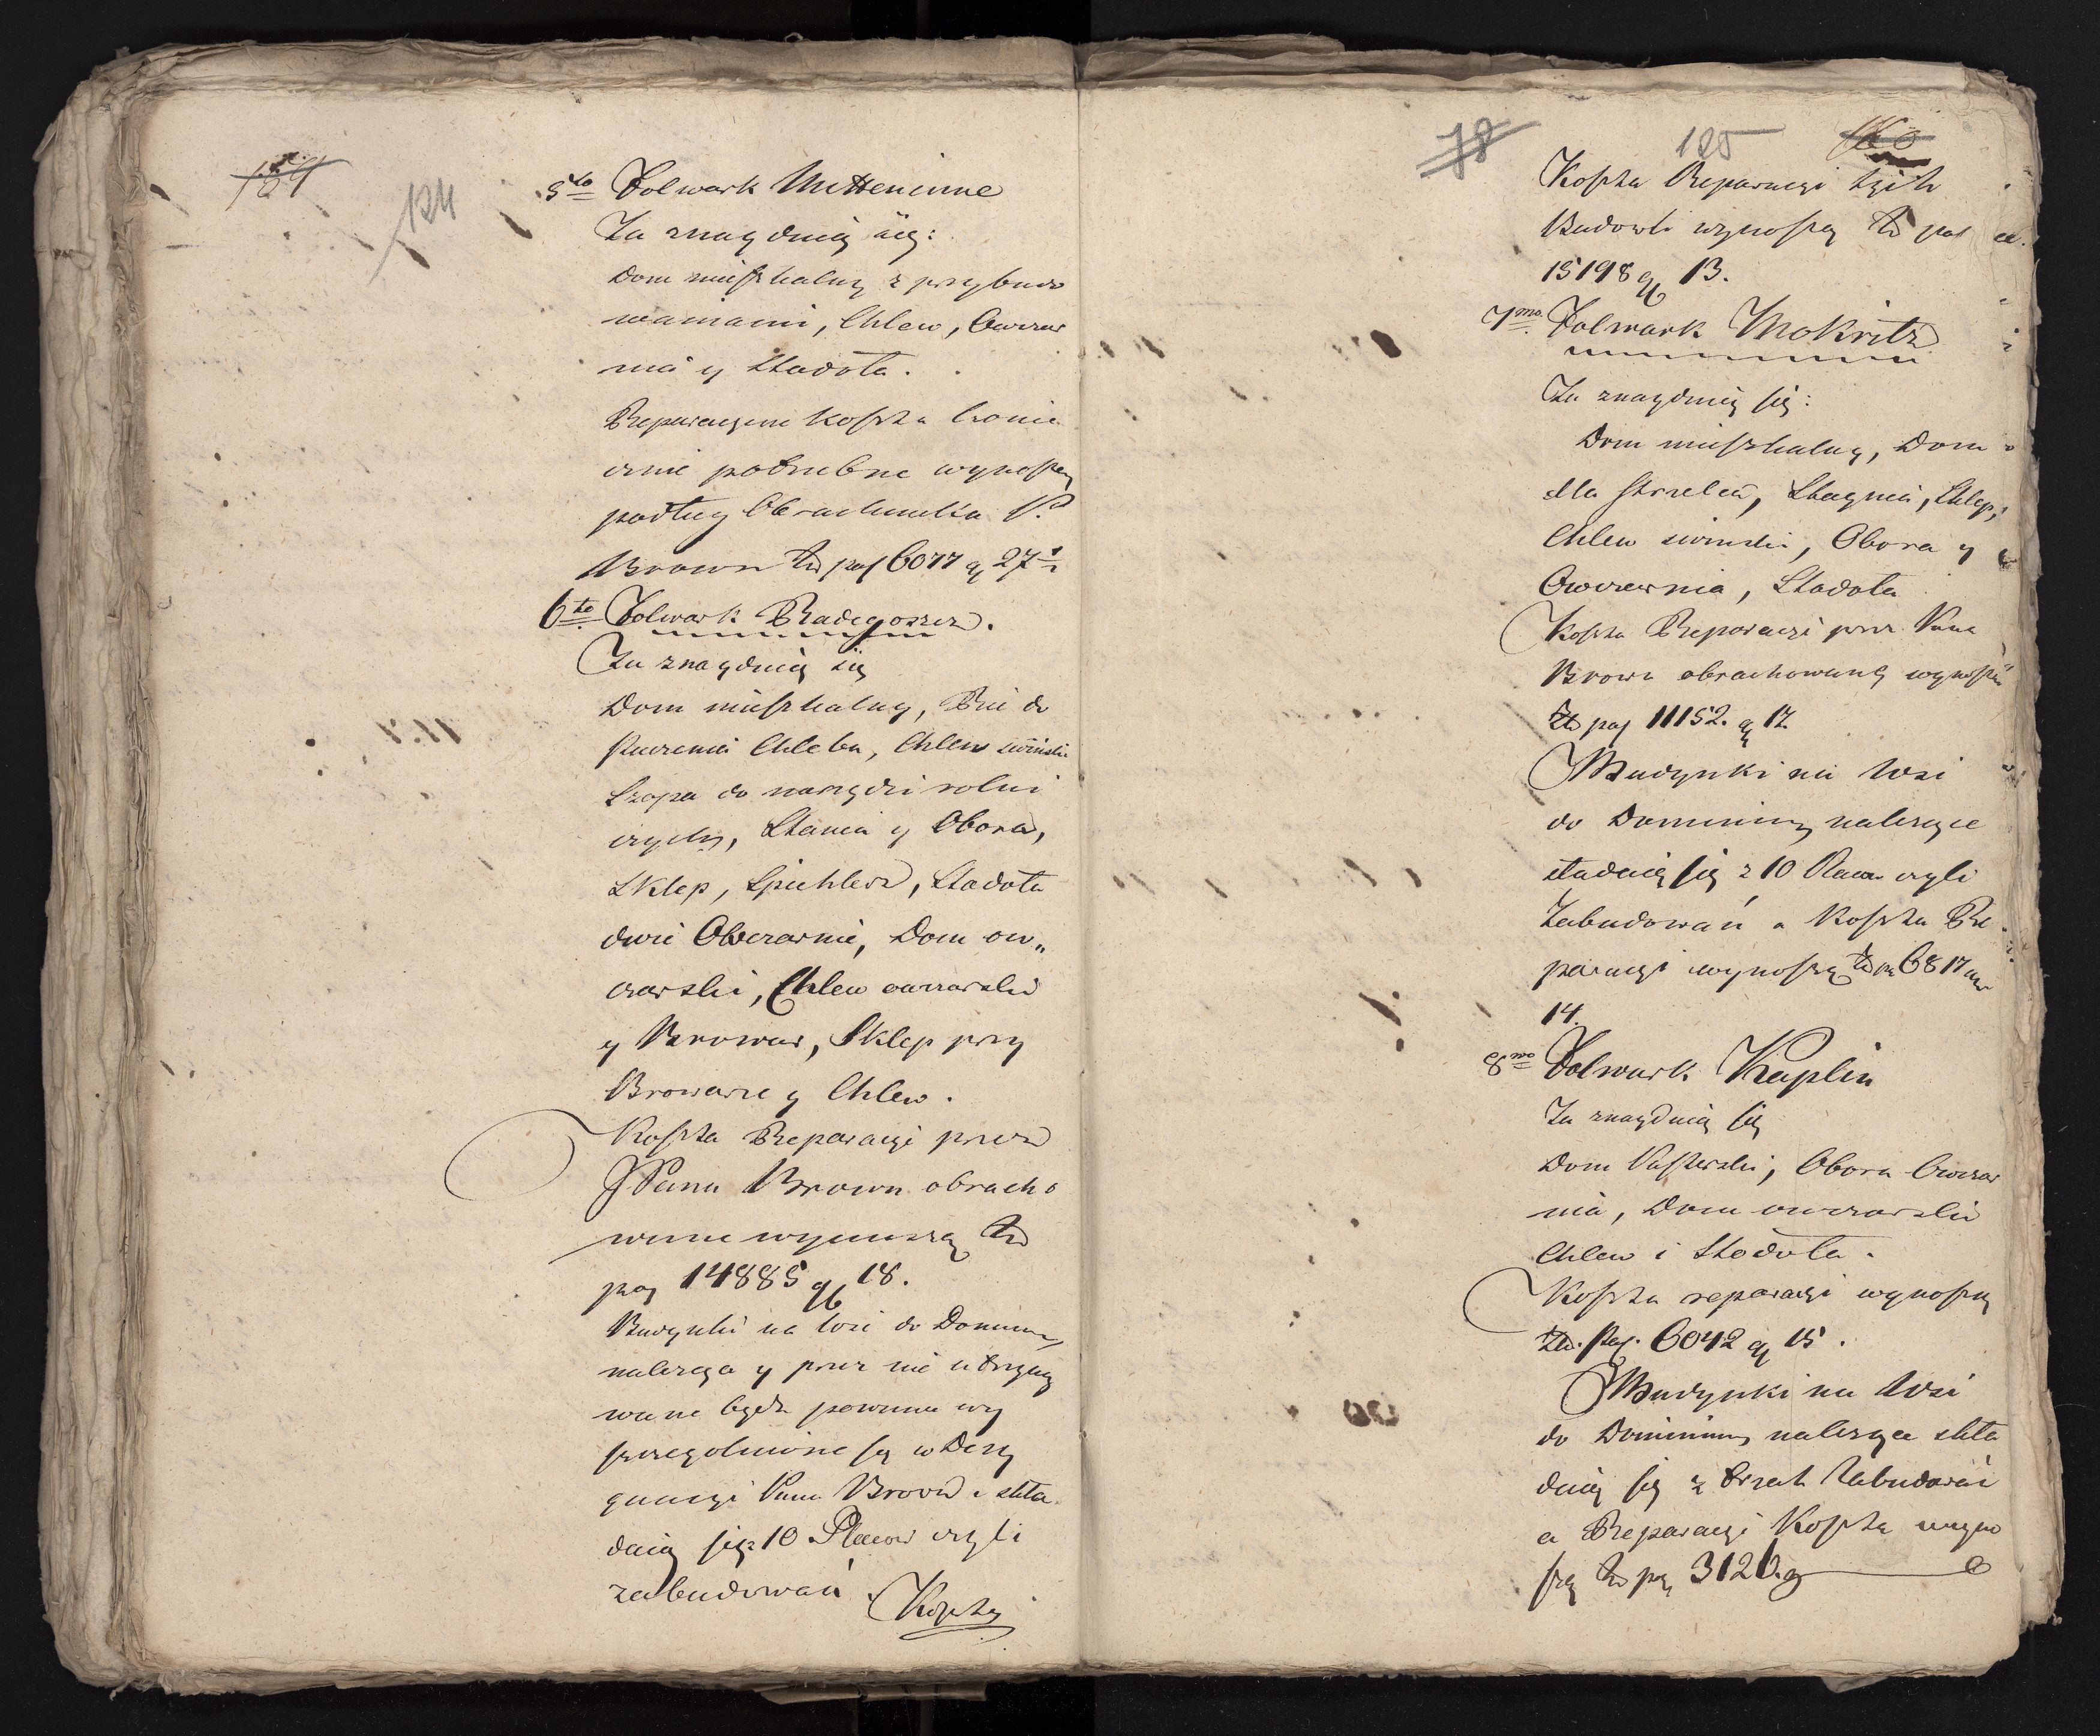 124
5to Folwark Mitteninne
Tu znayduią się:
Dom mieszkalny z przybudo
waniami, Chlew, Owczar
nia y Stodoła.
Reparacyine koszta konie
cznie potrzebne wynoszą
podług Obrachunku P.
Brown zł pol 6077 gr 27½
6to Folwark Radegoszcz.
Tu znayduią się
Dom mieszkalny, Piec do
pieczenia Chleba, Chlew swiński
Szopa do narzędzi rolni
czych, Stania y Obora,
Sklep, Spichlerz, Stodoła
dwie Owczarnie, Dom ow„
czarski, Chlew owczarski
y Browar, Sklep przy
Browarze y Chlew.
Koszta Reparacyi przez
JPana Brown obracho
wane wynoszą zł
pol 14885 gr 18.
Budynki na wsi do Dominium
należące y przez nie utrzymy
wane bydź powinne wy
szczegolnione są w
Pana Brown a skła
daią się z 10 Placow czyli
zabudowań. Koszta
78 125
Koszta Reparacyi tych
Budowli wynoszą zł pol
15198 gr 13.
7mo. Folwark Mokritz
Tu znayduią się:
Dom mieszkalny, Dom
dla strzelca, Staynia, Sklep,
Chlew swinski, Obora y
Owczarnia, Stodoła
Koszta Reparacyi przez Pana
Brown obrachowane wynoszą
zł pol 11152. gr 17.
Budynki na Wsi
do Dominium należące
składaią się z 10 Placow czyli
Zabudowań a Koszta Re
paracyi wynoszą zł pol 6817 gr
14.
8mo Folwark Kaplin
Tu znayduią się
Dom Pasterski, Obora Owczar
nia, Dom owczarski
Chlew i Stodoła.
Koszta reparacyi wynoszą
zł. pol. 6042 gr 15.
Budynki na Wsi
do Dominium należące skła
daią się z trzech Zabudowań
a Reparacyi Koszta wyno
szą zł pol 3126. gr